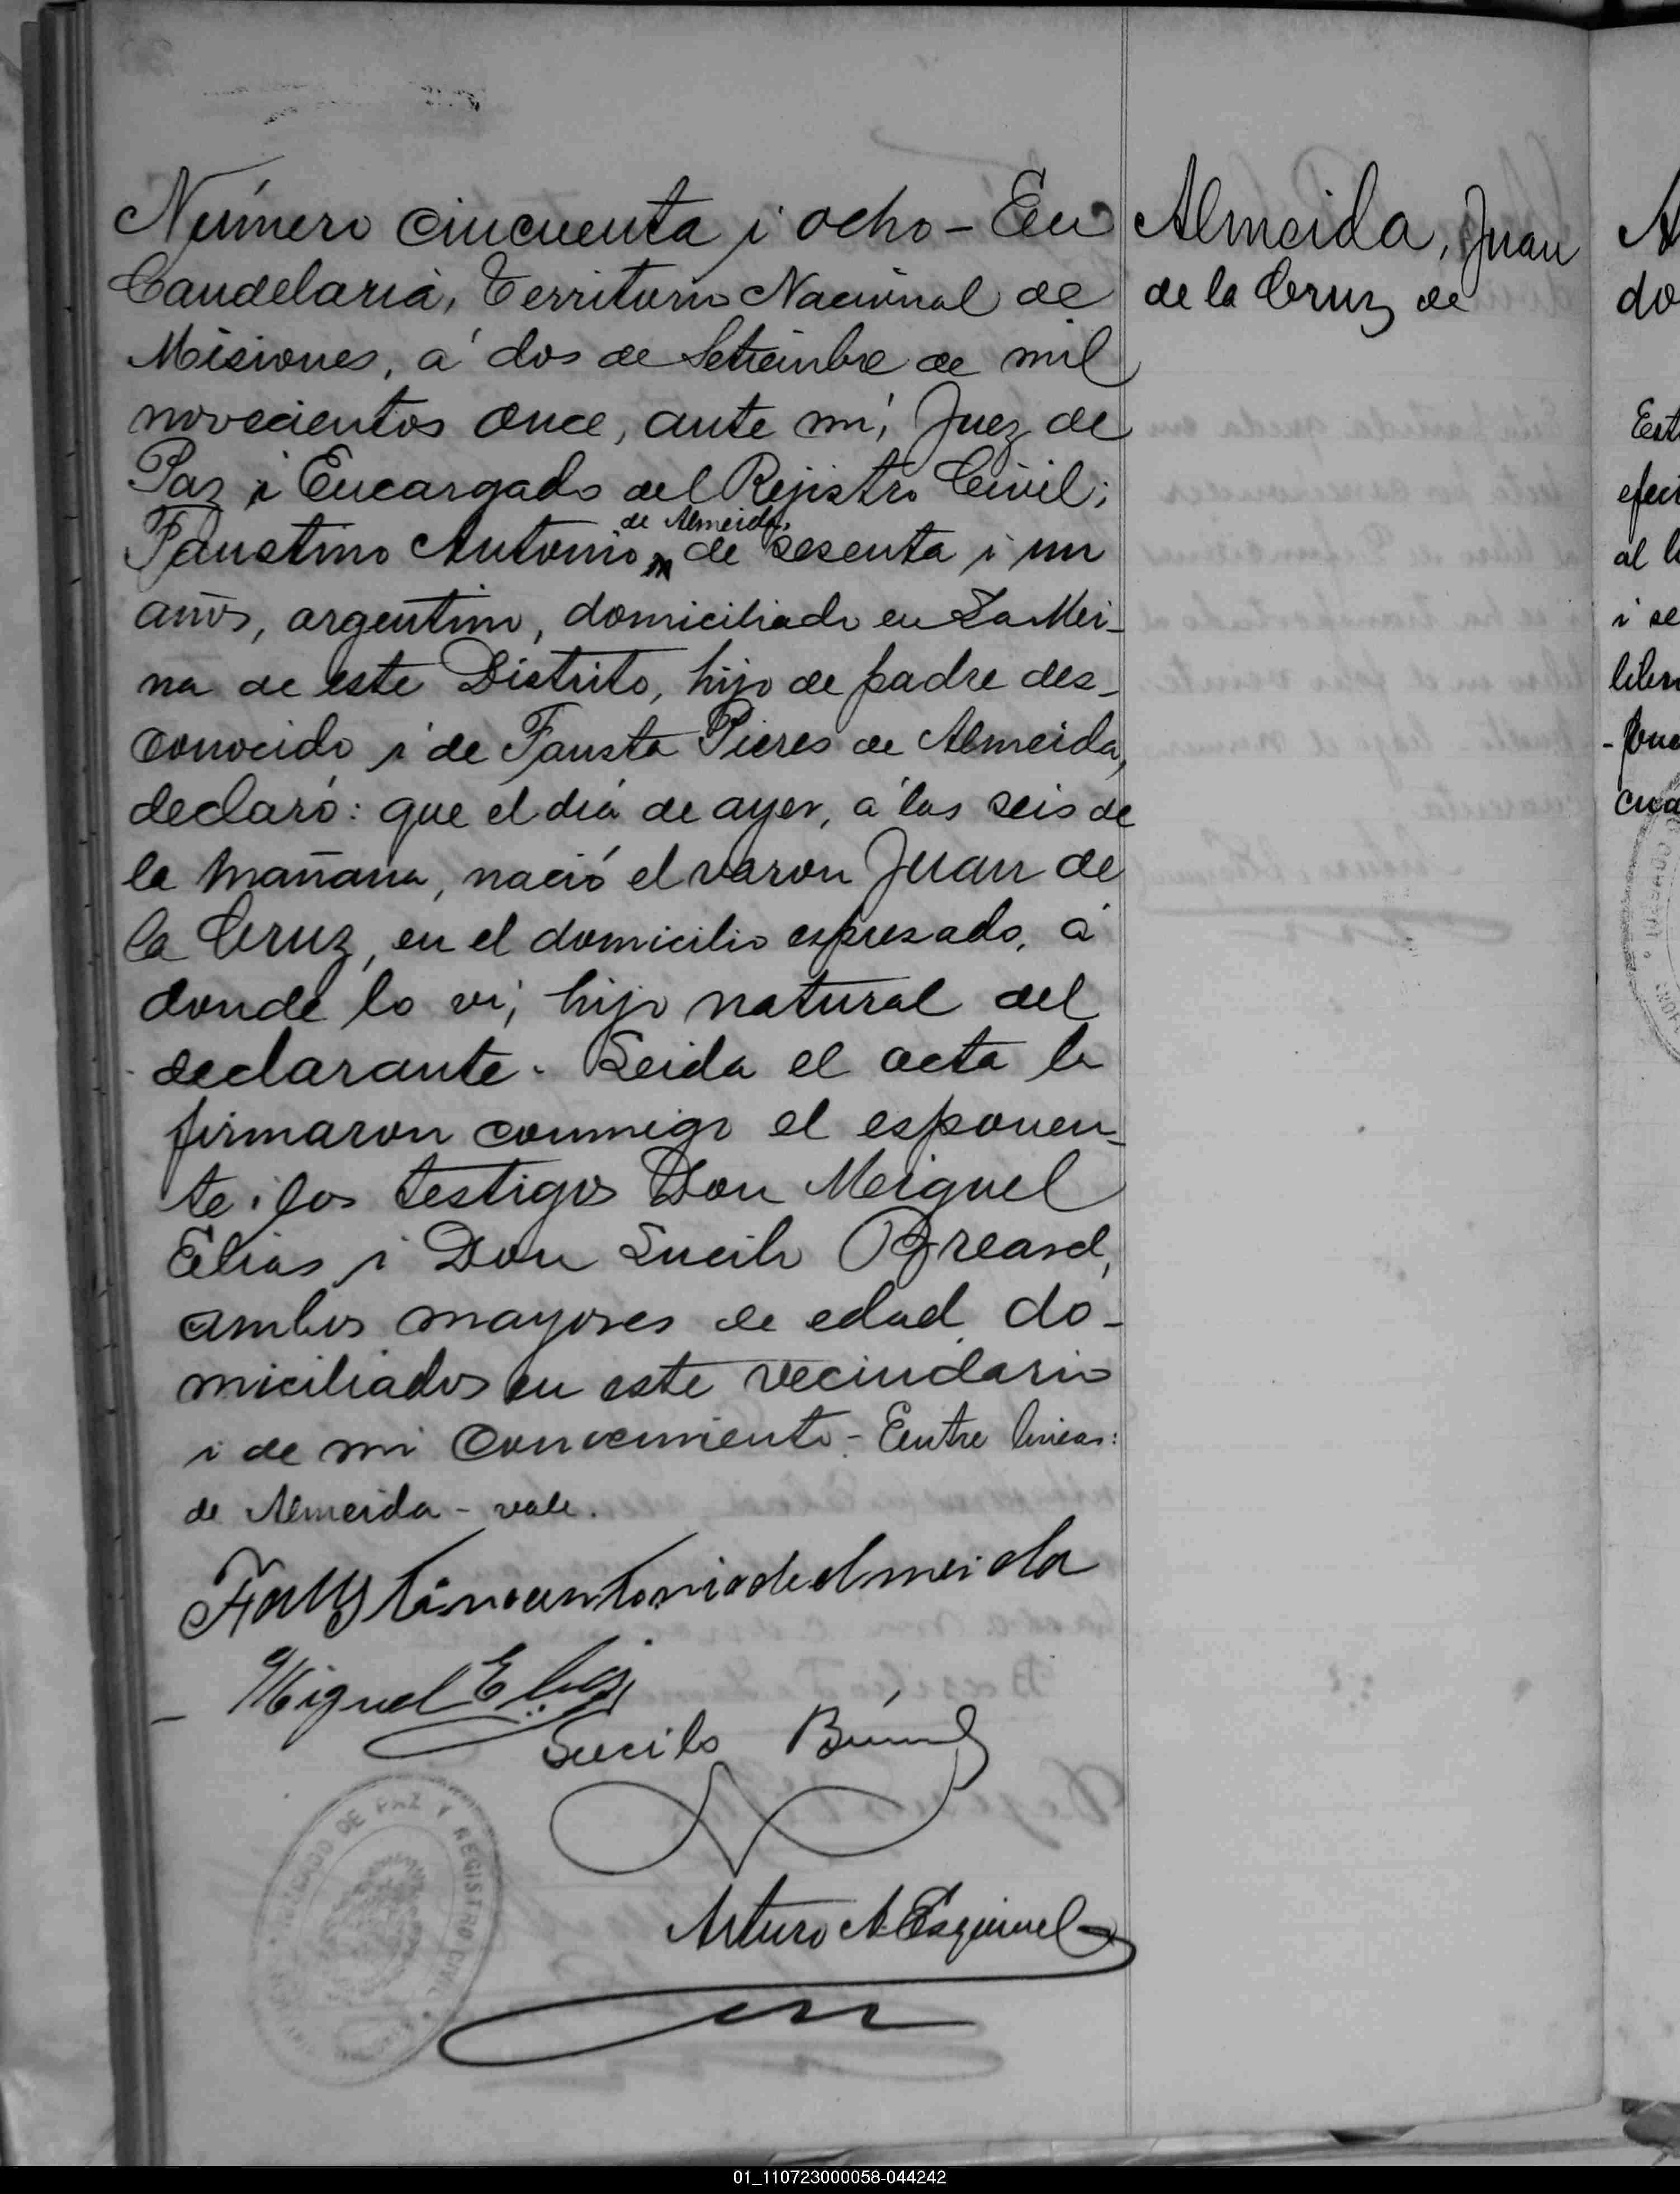 Número cincuenta i ocho - En
Candelaria, Territorio Nacional de
Misiones, á dos de Setiembre de mil
novecientos once, ante mí, Juez de
Paz i Encargado del Rejistro Civil;
de Almeida,
Faustino Antonio de sesenta i un
años, argentino, domiciliado en La Mi-
na de este Distrito, hijo de padre des-
conocido i de Fausta Pieres de Almeida,
declaró: que el dia de ayer, á las seis de
la mañana, nació el varon Juan de
la Cruz, en el domicilio espresado, á
donde lo vi; hijo natural del
declarante. Leida el acta la
firmaron conmigo el esponen-
te i los testigos Don Miguel
Elias i Don Lucilo
ambos mayores de edad do-
miciliados en este vecindario
i de mi conocimiento - Entre lineas:
de Almeida - vale.
Faustino antonio de almeida
Miguel Elias
Lucilo
Arturo A. Esquivel
Almeida, Juan
de la Cruz de
JUZGADO DE PAZ Y REGISTRO CIVIL
A
do
Est
efec
al l
i se
libr
cua
01_110723000058-044242